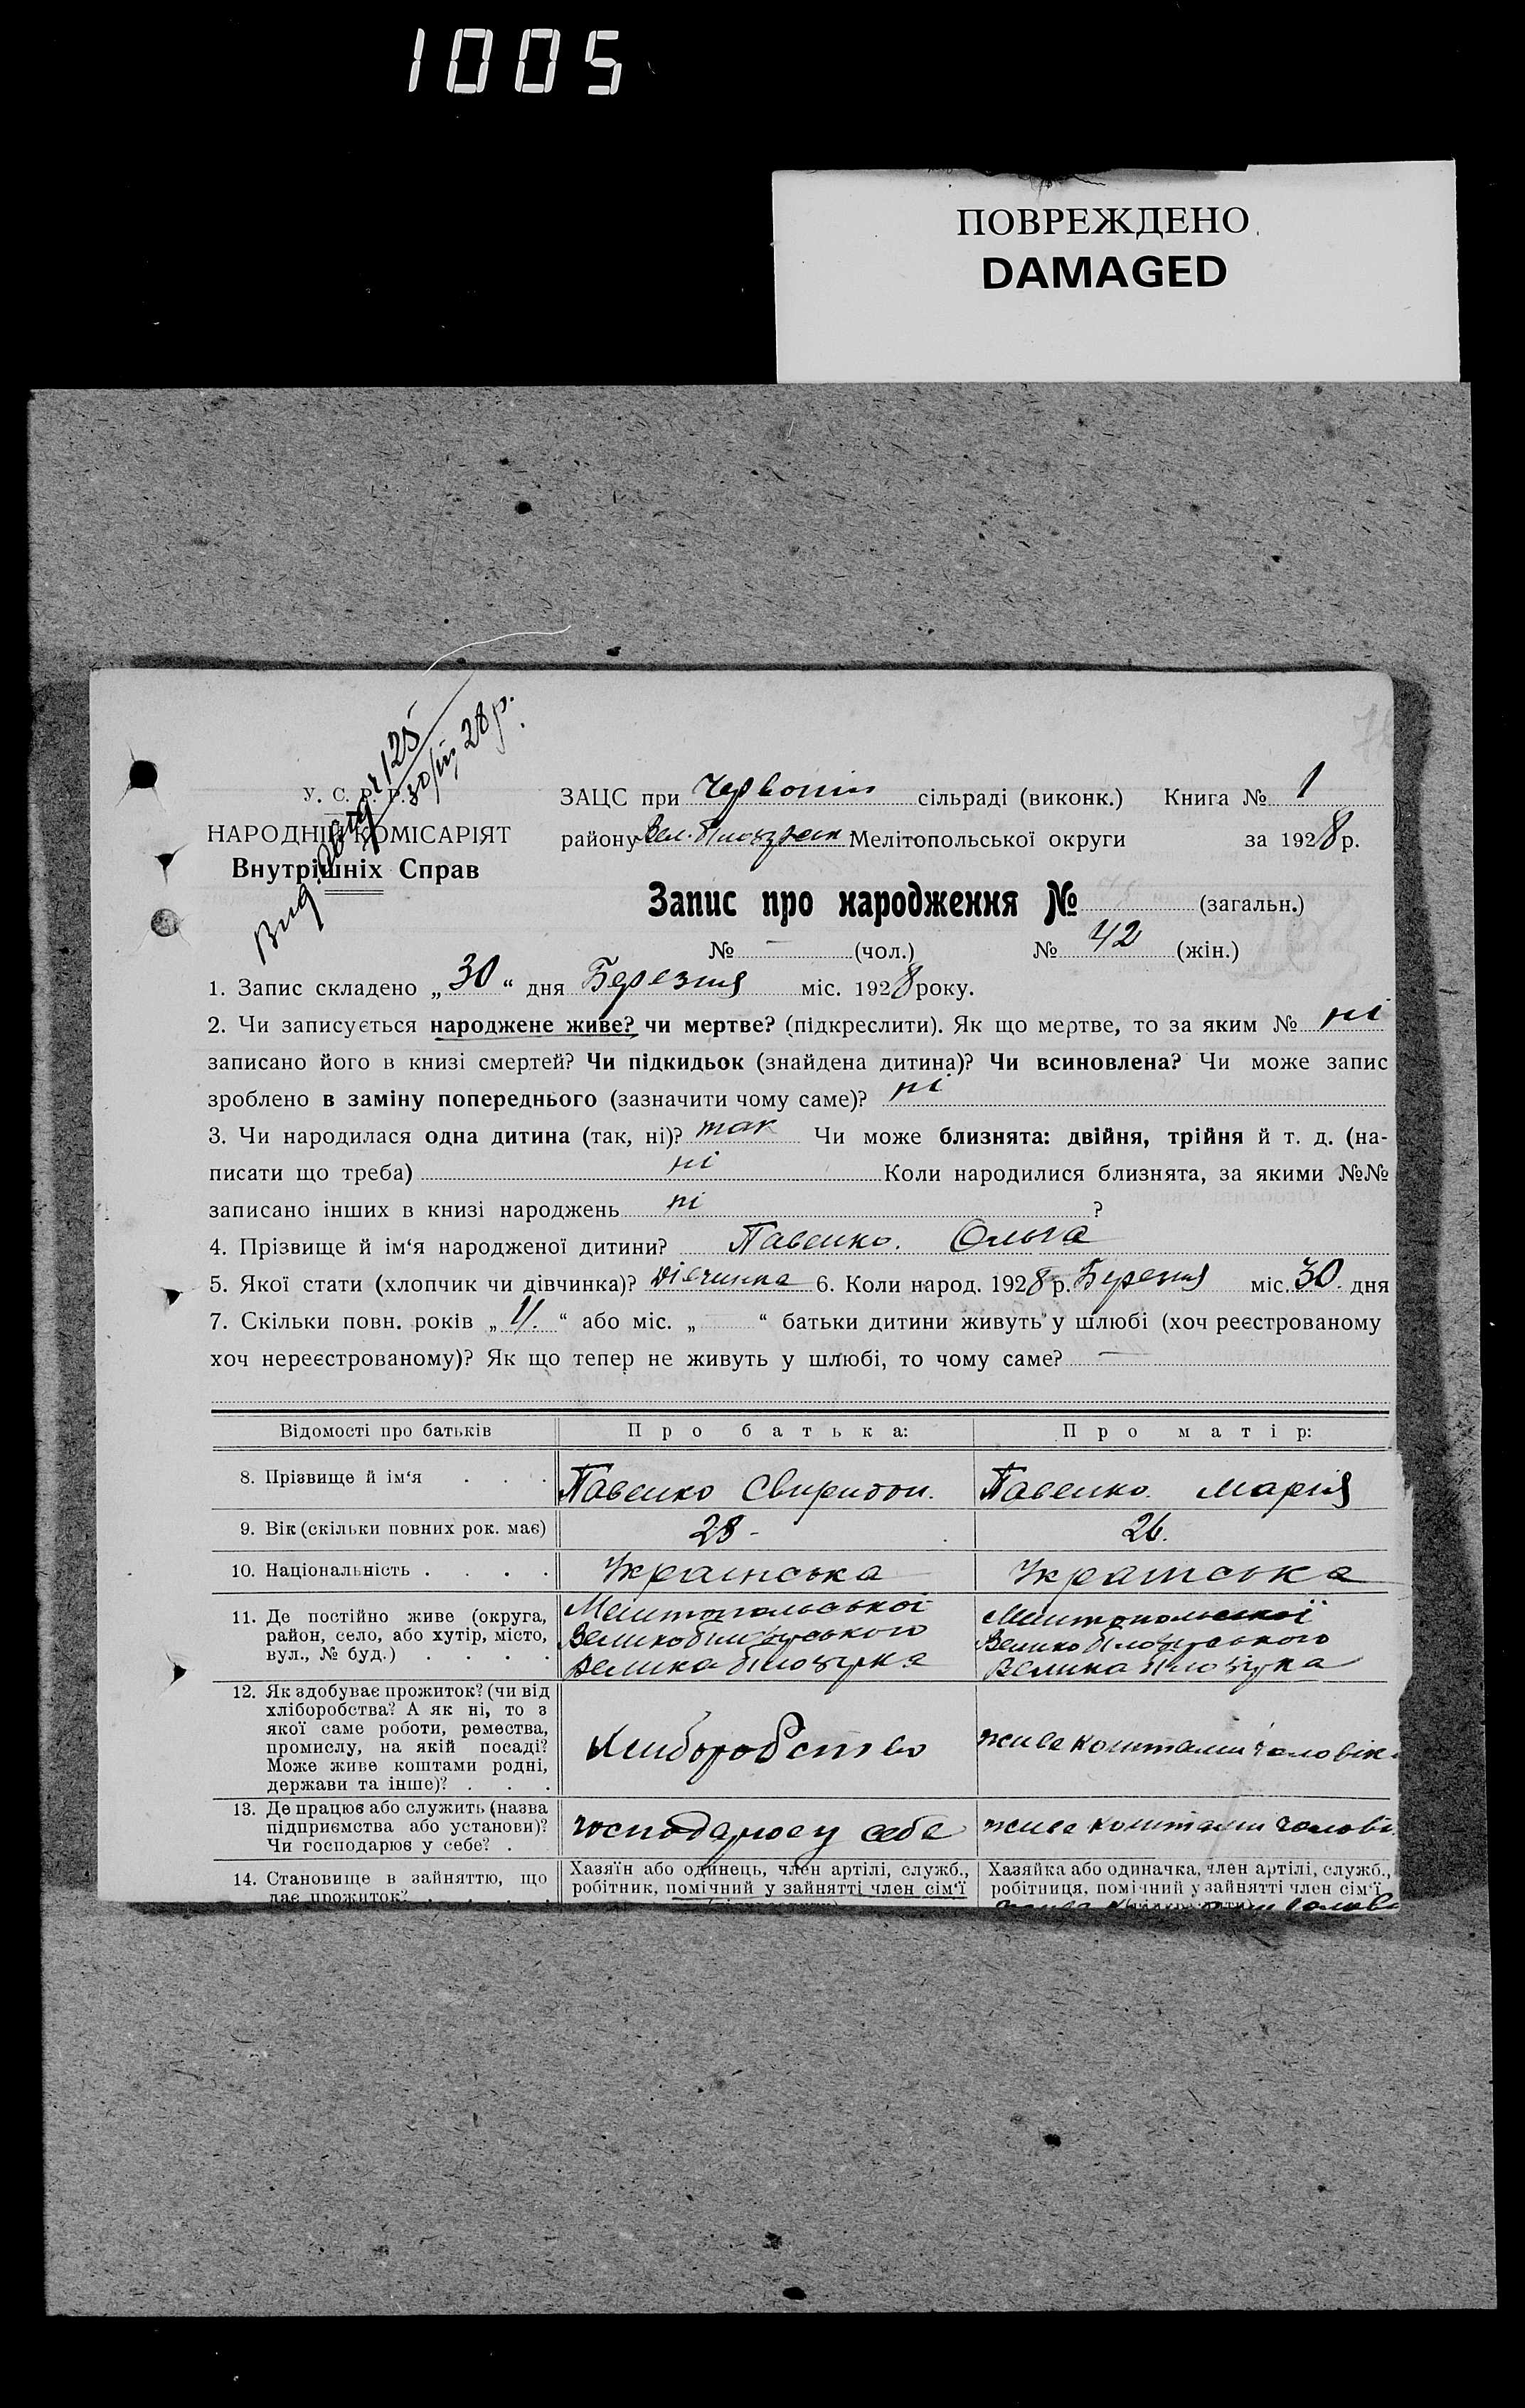 1005
ПОВРЕЖДЕНО
DAMAGED
125
30/III 28 р.
У. С. Р. Р.
НАРОДНІЙ КОМІСАРІЯТ
Внутрішніх Справ
ЗАЦС при Червонін сільраді (виконк.) Книга № 1
району Вел. Білозерськ Мелітопольської округи за 1928 р.
Запис про народження № (загальн.)
№ — (чол.) № 42 (жін.)
1. Запис складено „30“ дня Березня міс. 1928 року.
2. Чи записується народжене живе? чи мертве? (підкреслити). Як що мертве, то за яким № ні
записано його в книзі смертей? Чи підкидьок (знайдена дитина)? Чи всиновлена? Чи може запис
зроблено в заміну попереднього (зазначити чому саме)? ні
3. Чи народилася одна дитина (так, ні)? так Чи може близнята: двійня, трійня й т. д. (на-
писати що треба) ні Коли народилися близнята, за якими №№
записано інших в книзі народжень ні ?
4. Прізвище й ім‘я народженої дитини? Павенко. Ольга
5. Якої стати (хлопчик чи дівчинка)? Дівчинка 6. Коли народ. 1928 р. Березня міс. 30 дня
7. Скільки повн. років „4.“ або міс. „ “ батьки дитини живуть у шлюбі (хоч реєстрованому
хоч нереєстрованому)? Як що тепер не живуть у шлюбі, то чому саме? —
Відомості про батьків Про батька: Про матір:
8. Прізвище й ім‘я . . . Павенко Свиридон. Павенко. Марія
9. Вік (скільки повних рок. має) 28 - 26.
10. Національність . . . . Українська Українська
11. Де постійно живе (округа, Мелітопольської Мелітопольської
район, село, або хутір, місто, Великобілозерського Великобілозерського
вул., № буд.) . . . . Велика Білозірка Велика Білозірка
12. Як здобуває прожиток? (чи від
хліборобства? А як ні, то з
якої саме роботи, ремества,
промислу, на якій посаді?
Може живе коштами родні,
держави та інше)? . . .
хліборобство живе коштами чоловік
13. Де працює або служить (назва
підприємства або установи)?
Чи господарює у себе? .
господарює у себе живе коштами чолові
14. Становище в зайняттю, що
дає прожиток? . . . .
Хазяїн або одинець, член артілі, служб.,
робітник, помічний у зайнятті член сім‘ї
Хазяйка або одиначка, член артілі, служб.,
робітниця, помічний у зайнятті член сім‘ї